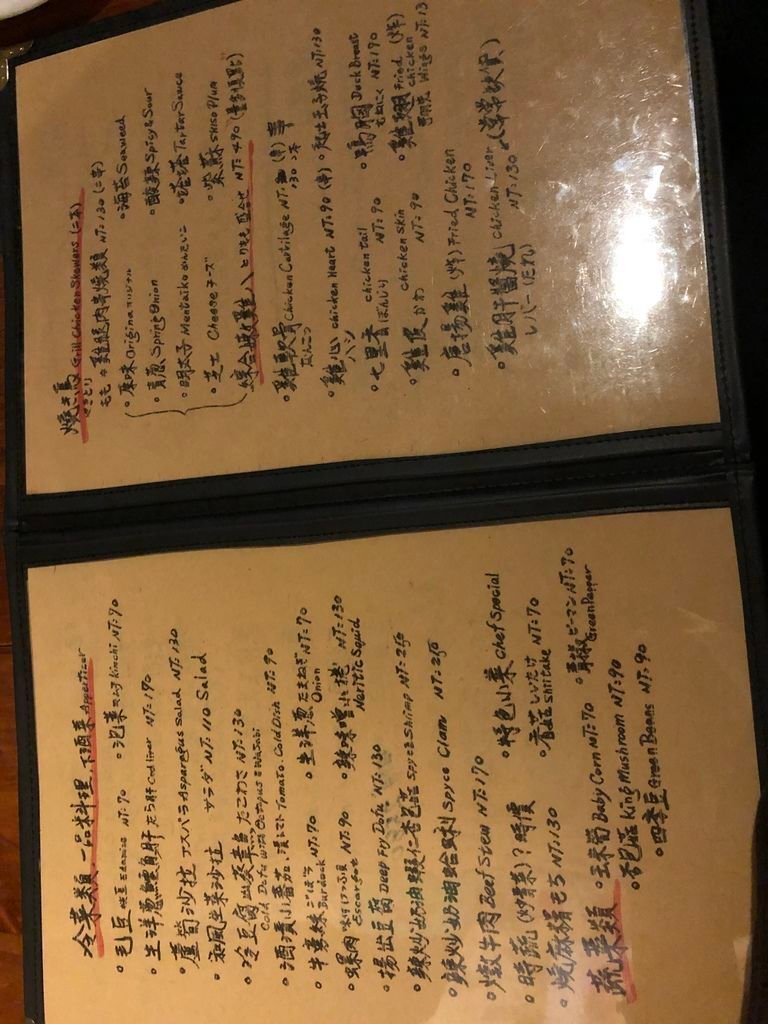 冷菜類.一品料理.下酒菜 Appetizer
•毛豆 枝豆 Edamame NT:70 •泡菜 キムチ Kimchi NT:70
•生洋蔥鱈魚肝 たら肝 Cod liver NT:190
•蘆筍沙拉 アスパラ Asparagus Salad NT:130
•和風生菜沙拉 サラダ NT:110 Salad
•冷豆腐山葵章魚 たこわさ NT:130
Cold Dofu With Octopus & Wasabi
•酒漬小蕃茄 漬トマト Tomato. Cold Dish NT:90
•牛蒡絲 ごぼう Burdock NT:70 •生洋蔥 たまねぎ NT:70
Onion
•螺肉 NT:90 •辣味噌小捲 NT:130
Escargot Neritic Squid
•揚出豆腐 Deep Fry Dofu NT:130
•辣炒奶油蝦仁杏包菇 Spyce Shrimp NT:250
•辣炒奶油蛤蜊 Spyce Clam NT:250
•燉牛肉 Beef Stew NT:170 •特色小菜 Chef Special
•時蔬(炒青菜)? 時價
•燒麻糬 もち NT:130 •香菇 しいたけ NT:70
Shiitake
蔬菜類 •玉米筍 Baby Corn NT:70 •青椒 ピーマン NT:70
Green Pepper
•杏包菇 King Mushroom NT:90
•四季豆 Green Beans NT:90
燒き鳥 Grill Chicken Skewers (二本)
やきとり
もも 雞腿肉串燒類 NT:130 (二串)
•原味 Original オリジナル •海苔 Seaweed
•青蔥 Spring Onion •酸辣 Spicy & Sour
•明太子 Mentaiko めんたいこ •塔塔 Tartar Sauce
•芝士 Cheese チーズ •紫蘇 Shiso Plum
綜合串燒雞 とりもも盛合せ NT:490
•雞軟骨 Chicken Cartilage NT:130 二本
なんこつ
•雞心 chicken Heart NT:90 (串) •起士玉子燒 NT:130
ハツ
•七里香 chicken tail NT:90 •鴨胸 Duck Breast
ぼんじり NT:190
•雞皮 chicken skin NT:90 •雞翅 Fried chicken Wings (炸)
かわ NT:13
•唐揚雞 (炸) Fried Chicken NT:170
•雞肝醬燒 chicken Liver
レバー (たれ) NT:130